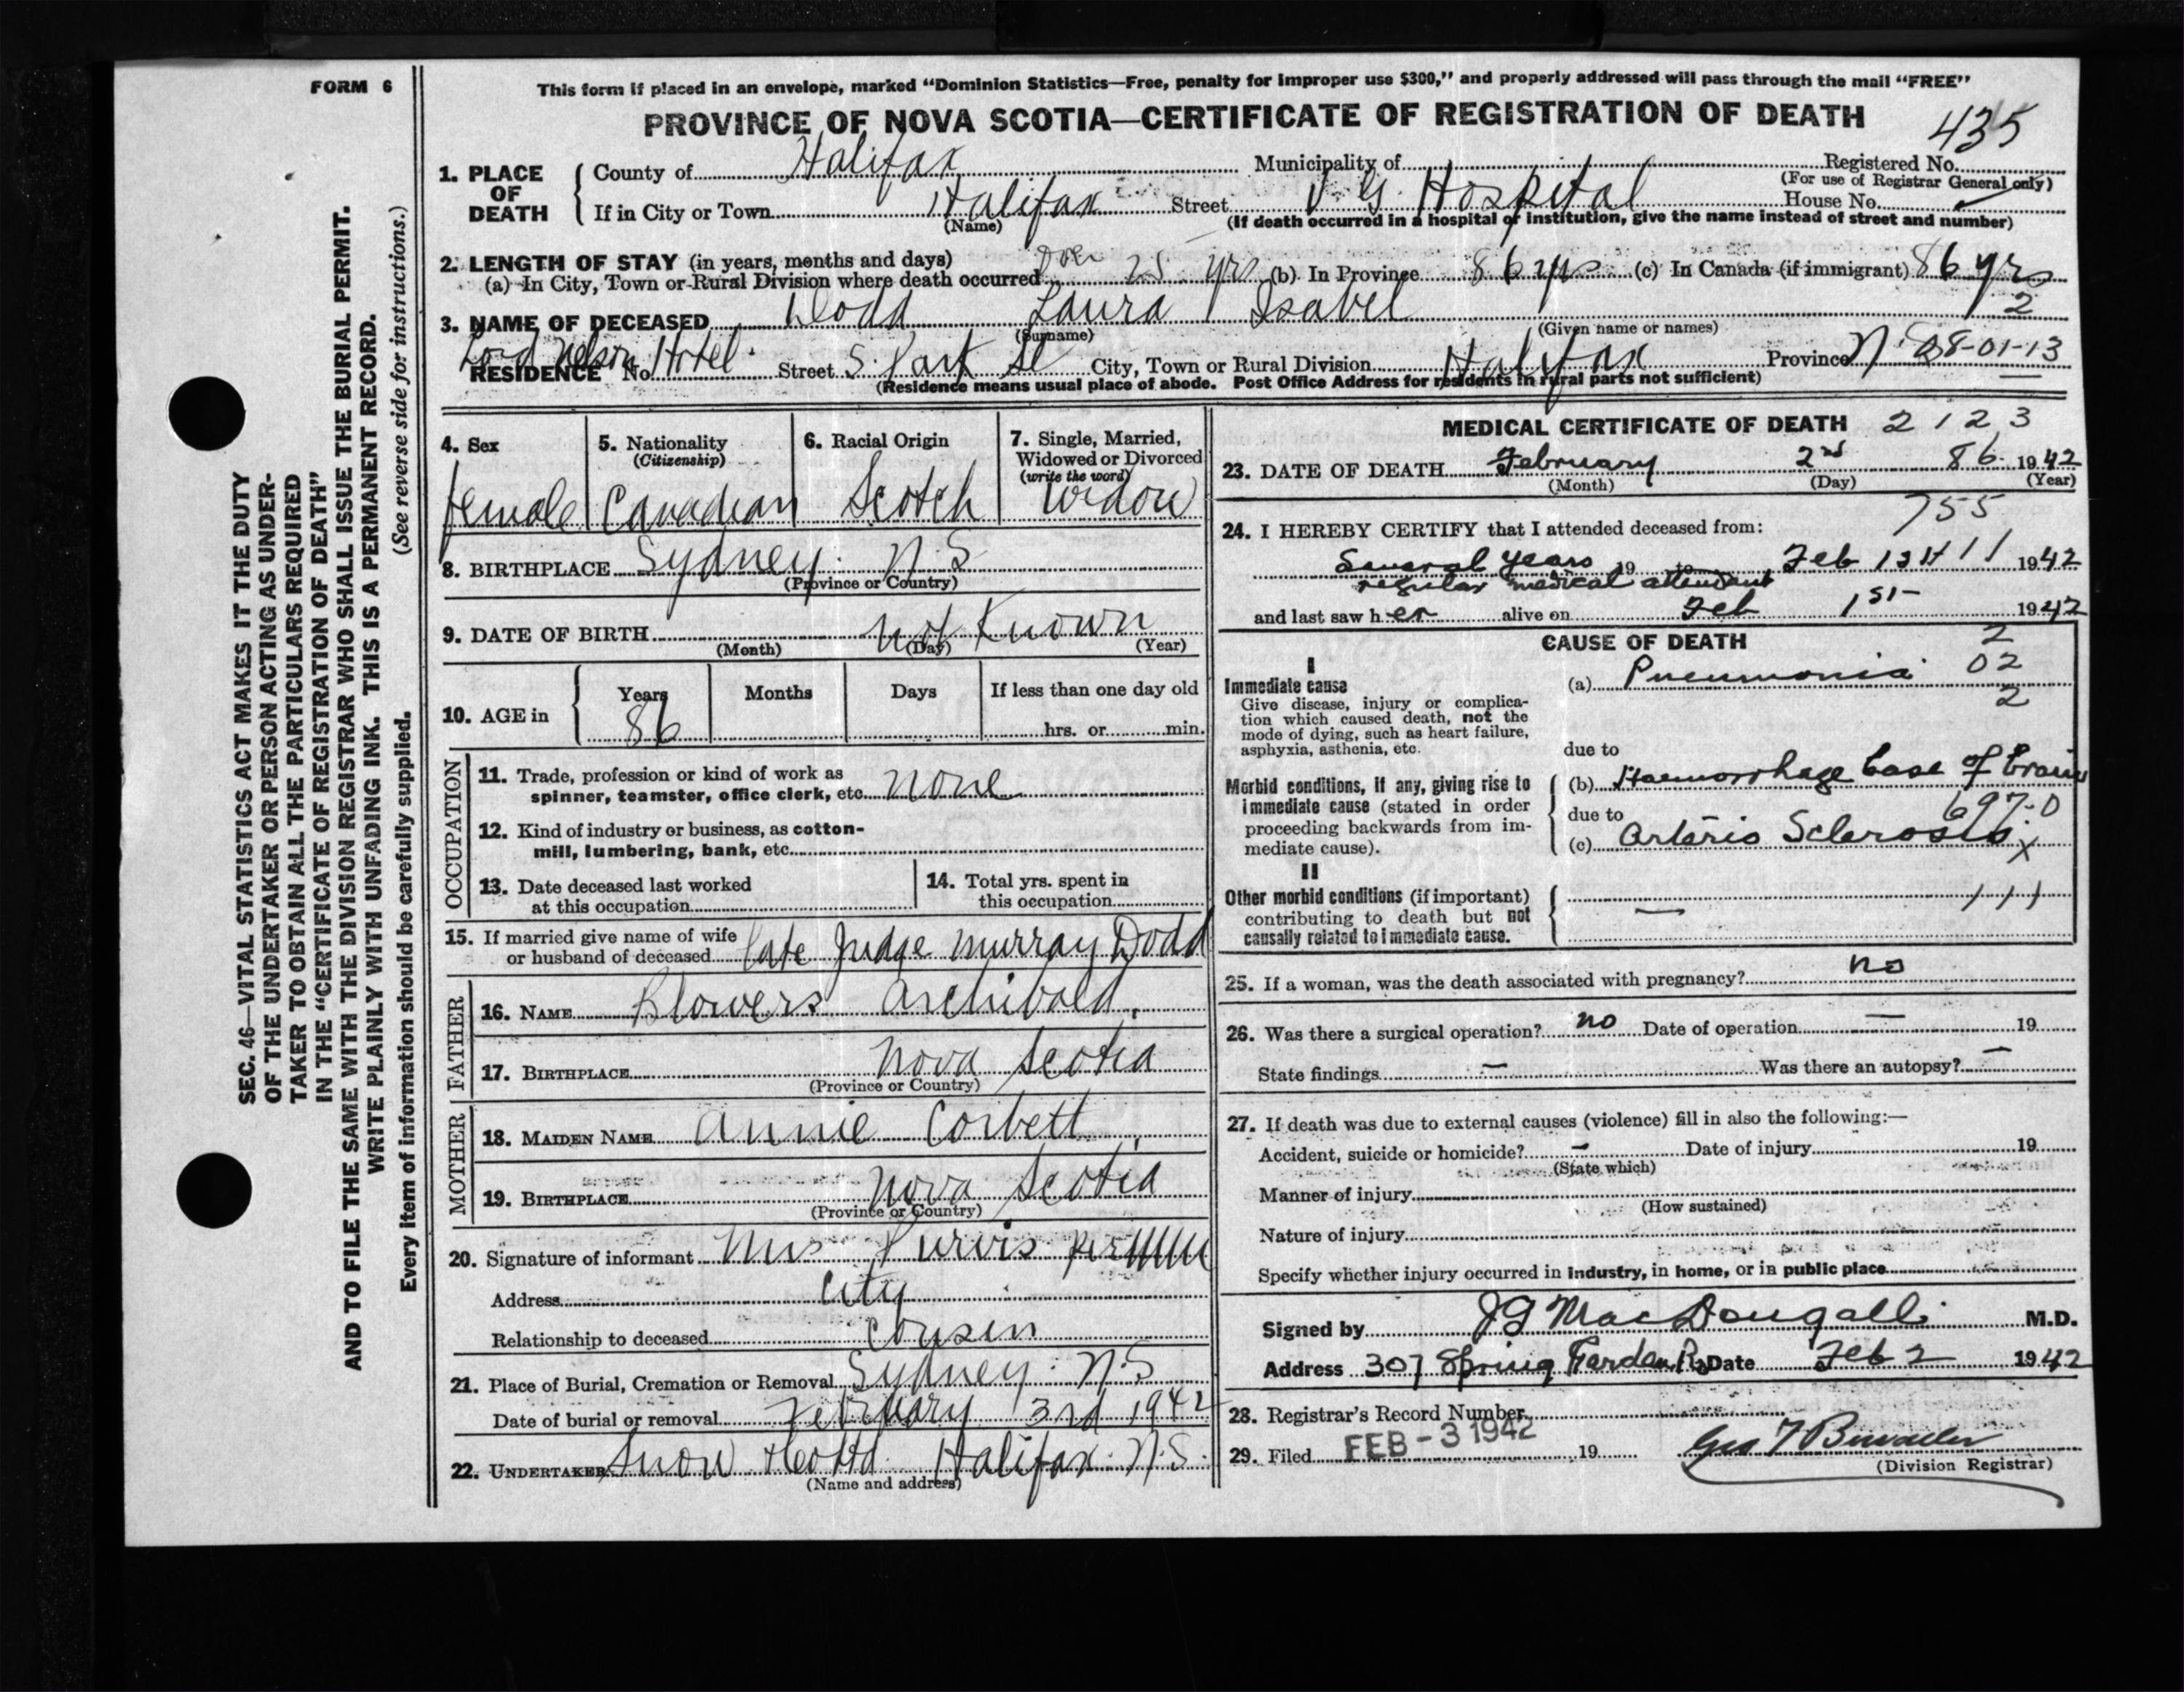 FORM 6
This form if placed in an envelope, marked "Dominion Statistics—Free, penalty for improper use $300," and properly addressed will pass through the mail "FREE"
PROVINCE OF NOVA SCOTIA—CERTIFICATE OF REGISTRATION OF DEATH
435
1. PLACE OF DEATH
County of Halifax Municipality of Registered No.
(For use of Registrar General only)
If in City or Town Halifax Street V. G. Hospital House No.
(Name) (If death occurred in a hospital or institution, give the name instead of street and number)
2. LENGTH OF STAY (in years, months and days)
(a) In City, Town or Rural Division where death occurred Over 25 yrs (b) In Province 86 yrs (c) In Canada (if immigrant) 86 yrs
3. NAME OF DECEASED Dodd Laura Isabel 2
(Surname) (Given name or names)
RESIDENCE No. Lord Nelson Hotel Street S. Park St City, Town or Rural Division Halifax Province N. S 8-01-13
(Residence means usual place of abode. Post Office Address for residents in rural parts not sufficient)
4. Sex
female
5. Nationality
(Citizenship)
Canadian
6. Racial Origin
Scotch
7. Single, Married,
Widowed or Divorced
(write the word)
Widow
8. BIRTHPLACE Sydney N.S
(Province or Country)
9. DATE OF BIRTH not Known
(Month) (Day) (Year)
10. AGE in
Years Months Days If less than one day old
86 hrs. or min.
OCCUPATION
11. Trade, profession or kind of work as
spinner, teamster, office clerk, etc. none
12. Kind of industry or business, as cotton-
mill, lumbering, bank, etc.
13. Date deceased last worked
at this occupation
14. Total yrs. spent in
this occupation
15. If married give name of wife
or husband of deceased late Judge Murray Dodd
FATHER
16. NAME Blowers Archibald
17. BIRTHPLACE Nova Scotia
(Province or Country)
MOTHER
18. MAIDEN NAME Annie Corbett
19. BIRTHPLACE Nova Scotia
(Province or Country)
20. Signature of informant Mrs Purvis per
Address City
Relationship to deceased Cousin
21. Place of Burial, Cremation or Removal Sydney N.S
Date of burial or removal February 3rd 1942
22. UNDERTAKER Snow & Co Ltd Halifax N.S.
(Name and address)
MEDICAL CERTIFICATE OF DEATH 2123
23. DATE OF DEATH February 2nd 86 1942
(Month) (Day) (Year)
755
24. I HEREBY CERTIFY that I attended deceased from:
Several years 19 to Feb 1942
regular medical attendant
and last saw her alive on Feb 1st 1942
CAUSE OF DEATH 2
I
Immediate cause
Give disease, injury or complica-
tion which caused death, not the
mode of dying, such as heart failure,
asphyxia, asthenia, etc.
(a) Pneumonia 02
2
due to
Morbid conditions, if any, giving rise to
immediate cause (stated in order
proceeding backwards from im-
mediate cause).
(b) Haemorrhage base of brain
due to 697.0
(c) Arterio Sclerosis x
II
Other morbid conditions (if important)
contributing to death but not
causally related to immediate cause.
— 111
25. If a woman, was the death associated with pregnancy? no
26. Was there a surgical operation? no Date of operation — 19
State findings — Was there an autopsy? —
27. If death was due to external causes (violence) fill in also the following:—
Accident, suicide or homicide? — Date of injury 19
(State which)
Manner of injury
(How sustained)
Nature of injury
Specify whether injury occurred in industry, in home, or in public place
Signed by J G MacDougall M.D.
Address 307 Spring Garden Rd Date Feb 2 1942
28. Registrar's Record Number
29. Filed FEB - 3 1942 19
(Division Registrar)
SEC. 46—VITAL STATISTICS ACT MAKES IT THE DUTY
OF THE UNDERTAKER OR PERSON ACTING AS UNDER-
TAKER TO OBTAIN ALL THE PARTICULARS REQUIRED
IN THE "CERTIFICATE OF REGISTRATION OF DEATH"
AND TO FILE THE SAME WITH THE DIVISION REGISTRAR WHO SHALL ISSUE THE BURIAL PERMIT.
WRITE PLAINLY WITH UNFADING INK. THIS IS A PERMANENT RECORD.
Every item of information should be carefully supplied. (See reverse side for instructions.)